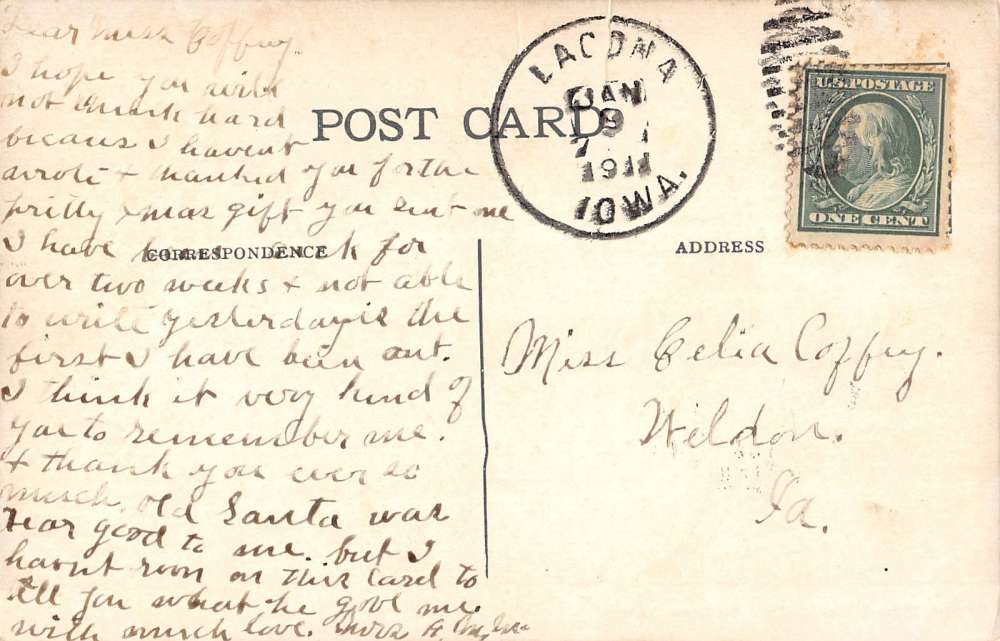 Dear Miss Coffey.
I hope you will
not think hard
becaus I havent
wrote & thanked you for the
pritty xmas gift you sent me
I have been sick for
over two weeks & not able
to write yesterday is the
first I have been out.
I think it very kind of
you to remember me.
& thank you ever so
much. old Santa was
rear good to me. but I
havnt room on this card to
tell you what he gove me.
with much love.
POST CARD
CORRESPONDENCE
LACONA
JAN
9
1911
IOWA.
U.S. POSTAGE
ONE CENT
ADDRESS
Miss Celia Coffey.
Weldon.
Ia.